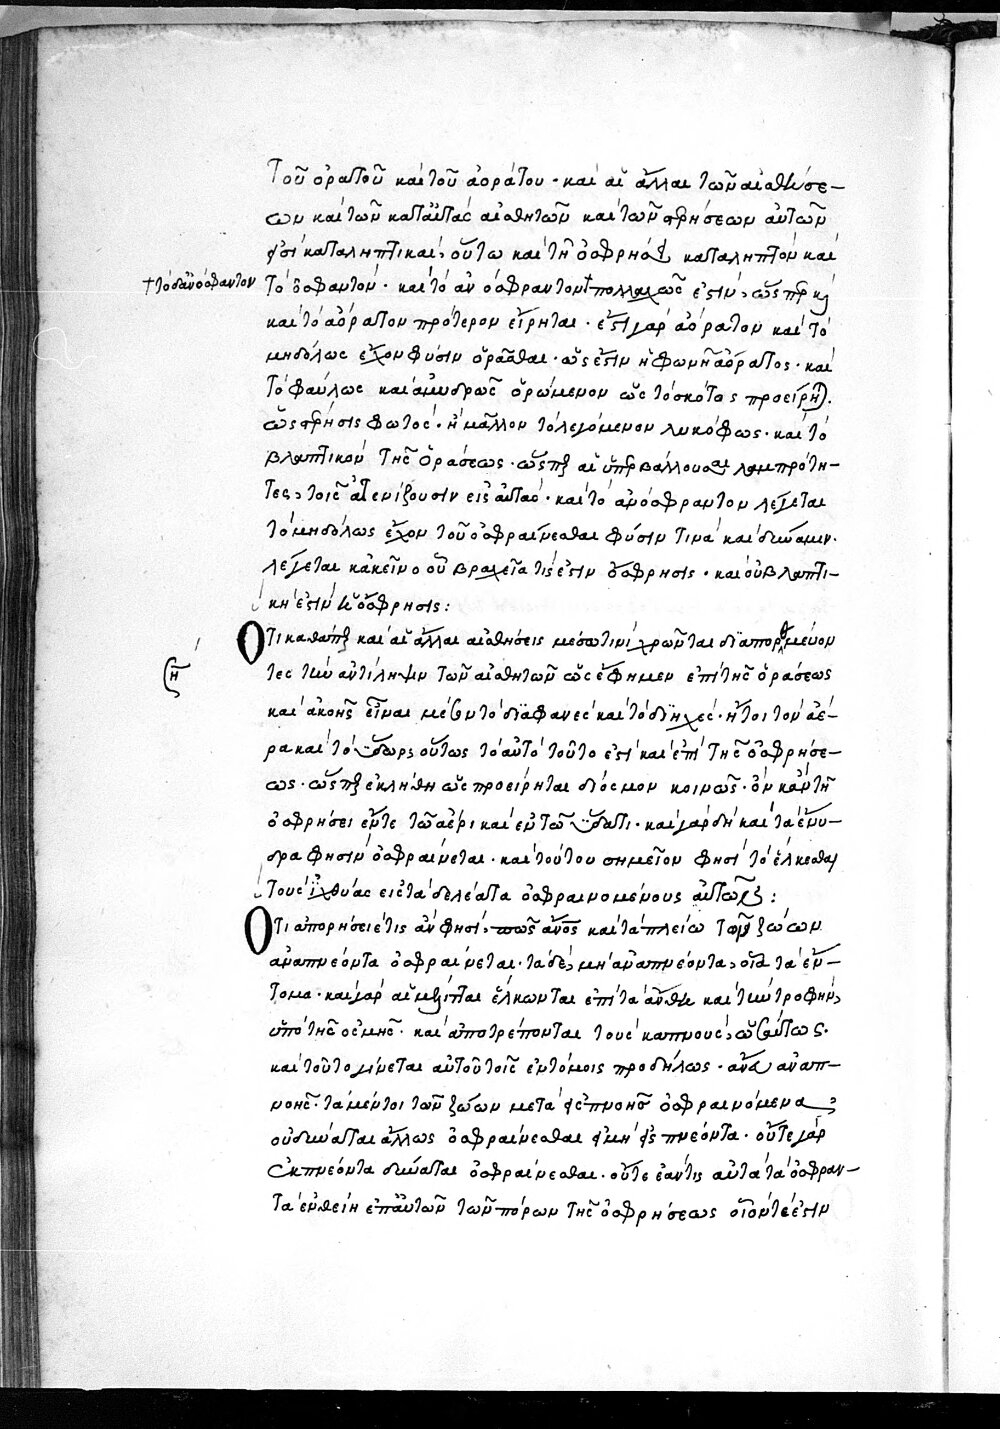 τοῦ ὁρατοῦ καὶ τοῦ ἀοράτου· καὶ αἱ ἄλλαι τῶν αἰσθήσε-
ων καὶ τῶν κατ' αὐτὰς αἰσθητῶν καὶ τῶν στερήσεων αὐτῶν
εἰσὶ καταληπτικαί, οὕτω καὶ τῇ ὀσφρήσει καταληπτὸν καὶ
† τὸ δ' ἀνόσφραντον
τὸ ὀσφραντόν· καὶ τὸ ἀνόσφραντον † πολλαχῶς ἐστὶν, ὥσπερ
καὶ τὸ ἀόρατον πρότερον εἴρηται· ἔστι γὰρ ἀόρατον καὶ τὸ
μηδόλως ἔχον φύσιν ὁρᾶσθαι· ὡς ἐστὶν ἡ φωνὴ ἀόρατος· καὶ
τὸ φαύλως καὶ ἀμυδρῶς ὁρώμενον ὡς τὸ σκότος προείρηται.
ὡς στέρησις φωτός· ἢ μᾶλλον τὸ λεγόμενον λυκόφως· καὶ τὸ
βλαπτικὸν τῆς ὁράσεως· ὥσπερ αἱ ὑπερβάλλουσαι λαμπρότη-
τες, τοῖς ἀτενίζουσιν εἰς αὐτάς· καὶ τὸ ἀνόσφραντον λέγεται
τὸ μηδόλως ἔχον τοῦ ὀσφραίνεσθαι φύσιν τινὰ καὶ δύναμιν·
λέγεται κἀκεῖνο οὗ βραχεῖα τίς ἐστιν ὄσφρησις· καὶ οὗ βλαπτι-
κή ἐστιν ἡ ὄσφρησις:
Ὅτι καθάπερ καὶ αἱ ἄλλαι αἰσθήσεις μέσω τινὶ χρῶνται διαπορθμεύον
τες τὴν ἀντίληψιν τῶν αἰσθητῶν ὡς ἔφημεν ἐπὶ τῆς ὁράσεως
καὶ ἀκοῆς εἶναι μέσον τὸ διαφανὲς καὶ τὸ διηχές· ἤτοι τὸν ἀέ-
ρα καὶ τὸ ὕδωρ, οὕτως τὸ αὐτὸ τοῦτο ἐστὶ καὶ ἐπὶ τῆς ὀσφρήσε-
ως· ὥσπερ ἐκλήθη ὡς προείρηται δίοσμον κοινῶς· ὂν κἂν τῇ
ὀσφρήσει ἔν τε τῷ ἀέρι καὶ ἐν τῷ ὕδατι· καὶ γὰρ δὴ καὶ τὰ ἔνυ-
δρα φησὶν ὀσφραίνεται· καὶ τούτου σημεῖον φησὶ τὸ ἕλκεσθαι
τοὺς ἰχθύας εἰς τὰ δελέατα ὀσφραινομένους αὐτῶν:
Ὅτι ἀπορήσειέ τις ἂν φησί, πῶς ἄνος καὶ τὰ πλείω τῶν ζώων
ἀναπνέοντα ὀσφραίνεται· τὰ δὲ, μὴ ἀναπνέοντα, οἷα τὰ ἔν-
τομα· καὶ γὰρ αἱ μέλιτται ἕλκωνται ἐπὶ τὰ ἄνθη καὶ τὴν τροφὴν,
ὑπὸ τῆς ὀσμῆς· καὶ ἀποτρέπονται τοὺς καπνοὺς, ὡσαύτως·
καὶ τοῦτο γίνεται αὐτοῦ τοῖς ἐντόμοις προδήλως· ἄνευ ἀναπ-
νοῆς· τὰ μέντοι τῶν ζώων μετὰ εἰσπνοῆς ὀσφραινόμενα,
οὐ δύναται ἄλλως ὀσφραίνεσθαι εἰ μὴ εἰσπνέοντα· οὔτε γὰρ
ἐκπνέοντα δύναται ὀσφραίνεσθαι· οὔτε ἐάν τις αὐτὰ τὰ ὀσφραν-
τὰ ἐνθείη ἐπ' αὐτῶν τῶν πόρων τῆς ὀσφρήσεως οἷόν τέ ἐστιν